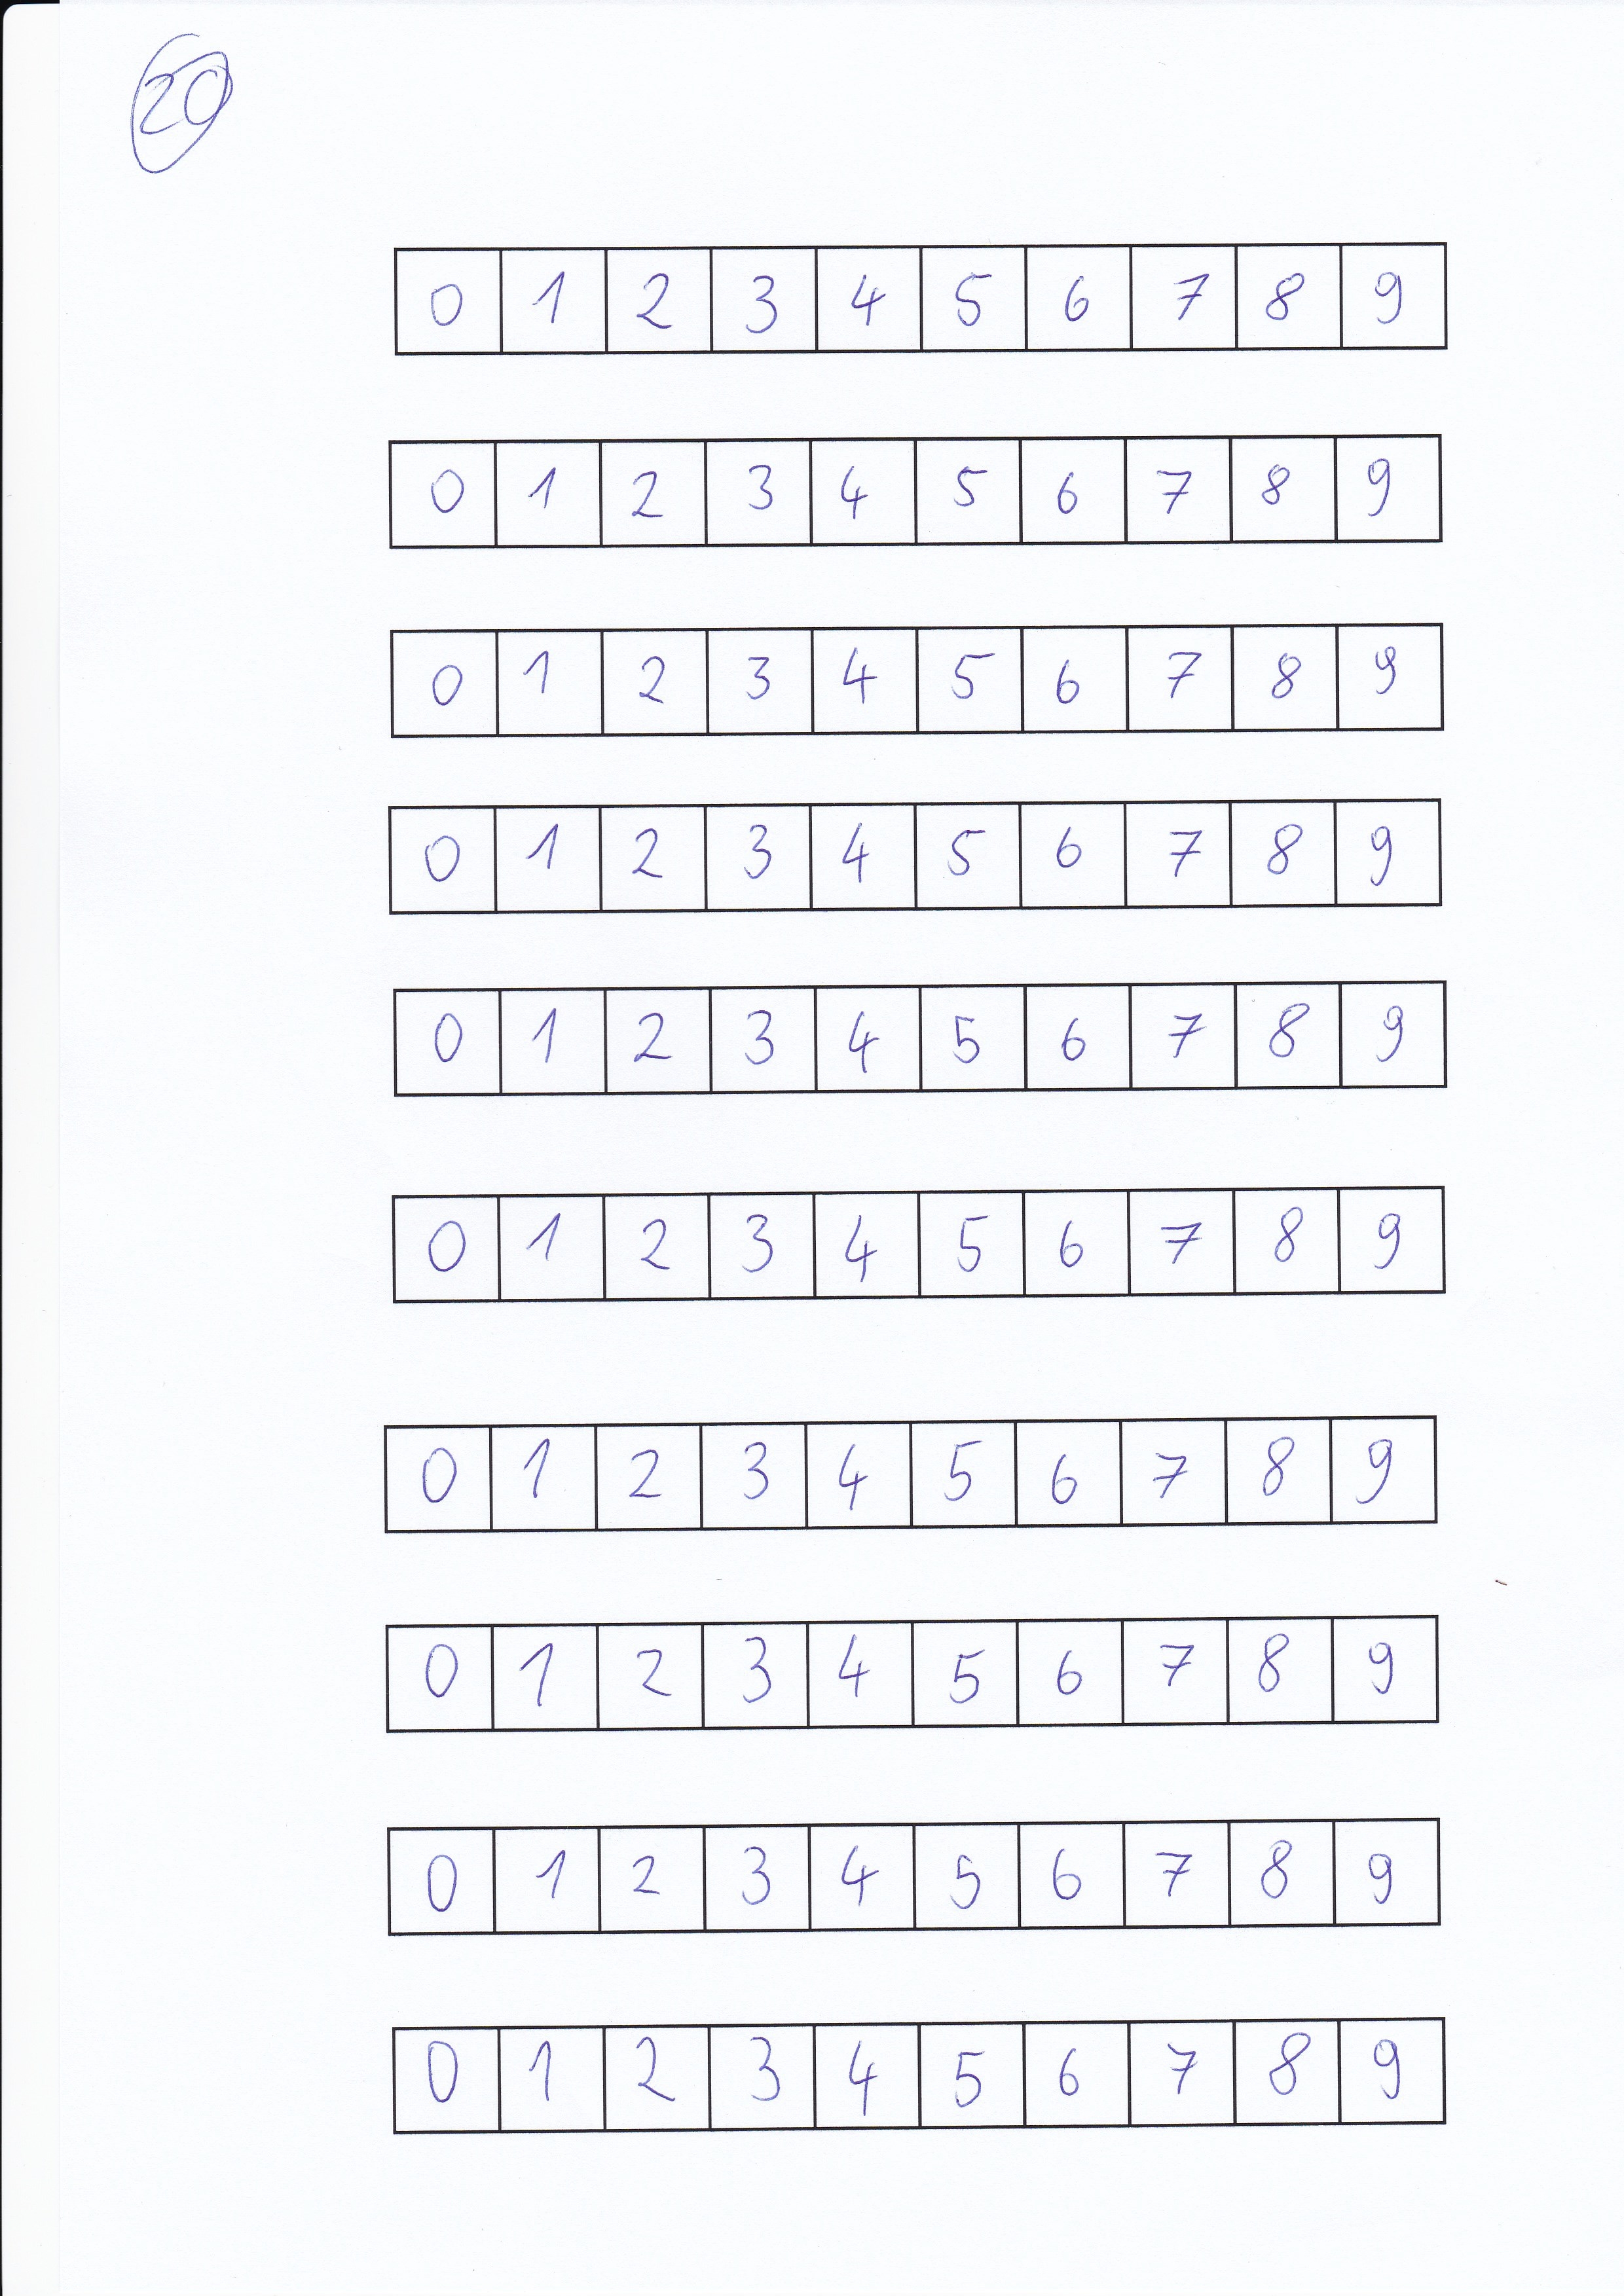 20
0 1 2 3 4 5 6 7 8 9
0 1 2 3 4 5 6 7 8 9
0 1 2 3 4 5 6 7 8 9
0 1 2 3 4 5 6 7 8 9
0 1 2 3 4 5 6 7 8 9
0 1 2 3 4 5 6 7 8 9
0 1 2 3 4 5 6 7 8 9
0 1 2 3 4 5 6 7 8 9
0 1 2 3 4 5 6 7 8 9
0 1 2 3 4 5 6 7 8 9